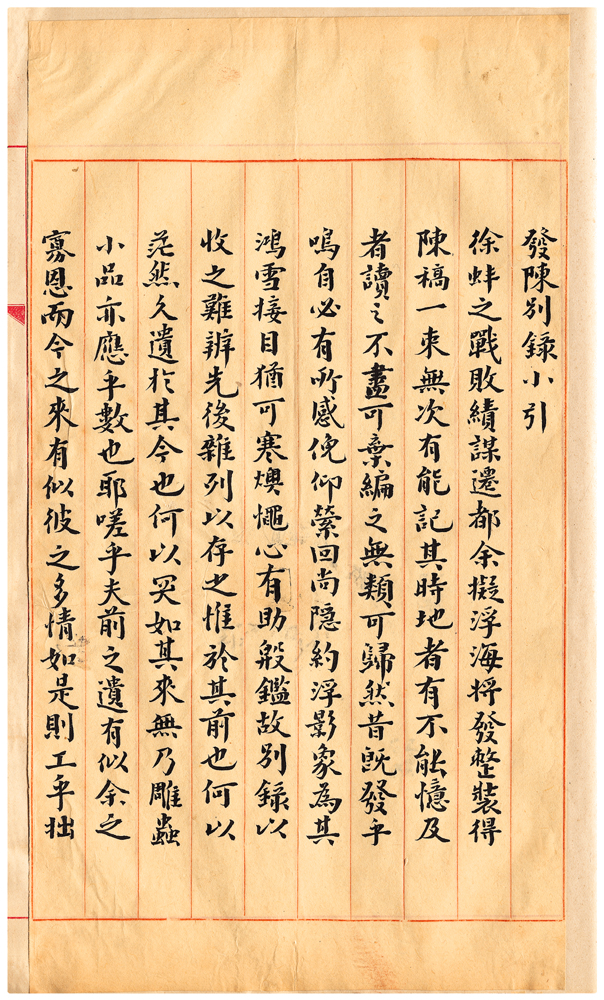 發陳別錄小引
徐蚌之戰敗績謀遷都余擬浮海將發整裝得
陳稿一束無次有能記其時地者有不能憶及
者讀之不盡可棄編之無類可歸然昔既發乎
鳴自必有所感俛仰縈回尚隱約浮影象為其
鴻雪接目猶可寒燠慪心有助殷鑑故別錄以
收之難辨先後雜列以存之惟於其前也何以
茫然久遺於其今也何以突如其來無乃雕蟲
小品亦應乎數也耶嗟乎夫前之遺有似余之
寡恩而今之來有似彼之多情如是則工乎拙